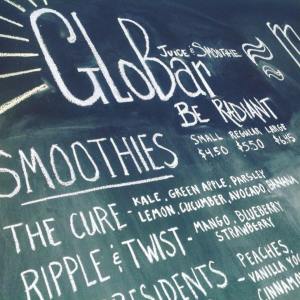 GLOBar
JUICE & SMOOTHIE
BE RADIANT
SMOOTHIES
SMALL REGULAR LARGE
$4.50 $5.50 $6.45
THE CURE - KALE, GREEN APPLE, PARSLEY
LEMON, CUCUMBER, AVOCADO, BANANA
RIPPLE & TWIST - MANGO, BLUEBERRY
STRAWBERRY
RESIDENTS - PEACHES,
VANILLA, YO
CINNAM